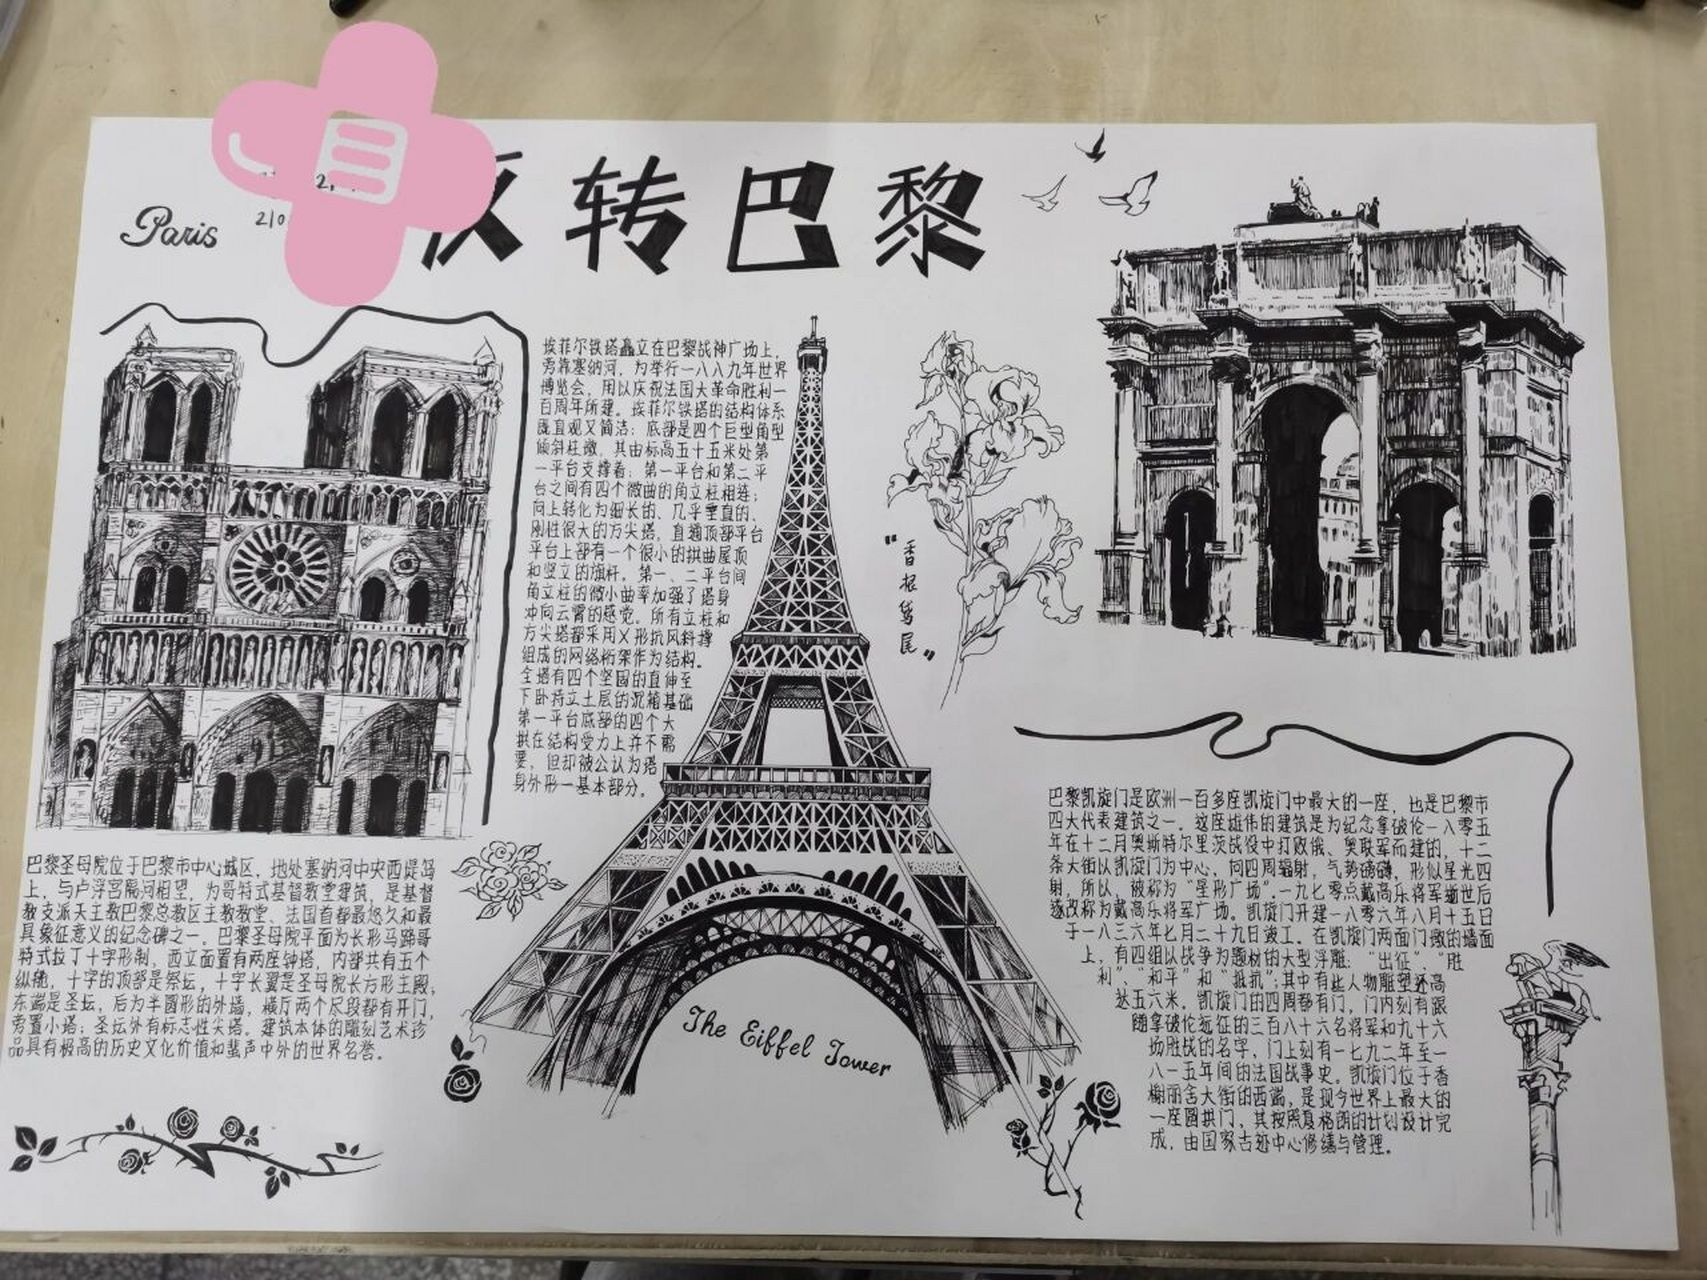 Paris
反转巴黎
埃菲尔铁塔矗立在巴黎战神广场上,
旁靠塞纳河,为举行一八八九年世界
博览会,用以庆祝法国大革命胜利一
百周年所建。埃菲尔铁塔的结构体系
既直观又简洁:底部是四个巨型角型
倾斜柱墩,其由标高五十五米处第
一平台支撑着;第一平台和第二平
台之间有四个微曲的角立柱相连;
向上转化为细长的、几乎垂直的、
刚性很大的方尖塔,直通顶部平台
平台上部有一个很小的拱曲屋顶
和竖立的旗杆,第一、二平台间
角立柱的微小曲率加强了塔身
冲向云霄的感觉。所有立柱和
方尖塔都采用X形抗风斜撑
组成的网络桁架作为结构。
全塔有四个坚固的直伸至
下卧持立土层的沉箱基础
第一平台底部的四个大
拱在结构受力上并不需
要,但却被公认为塔
身外形一基本部分。
“香根鸢尾”
巴黎圣母院位于巴黎市中心城区,地处塞纳河中央西堤岛
上,与卢浮宫隔河相望,为哥特式基督教堂建筑,是基督
教支派天主教巴黎总教区主教教堂、法国首都最悠久和最
具象征意义的纪念碑之一。巴黎圣母院平面为长形马蹄哥
特式拉丁十字形制,西立面置有两座钟塔,内部共有五个
纵桅,十字的顶部是祭坛,十字长翼是圣母院长方形主殿,
东端是圣坛,后为半圆形的外墙,横厅两个尽段都有开门,
旁置小塔;圣坛外有标志性尖塔。建筑本体的雕刻艺术珍
品具有极高的历史文化价值和蜚声中外的世界名誉。
The Eiffel Tower
巴黎凯旋门是欧洲一百多座凯旋门中最大的一座,也是巴黎市
四大代表建筑之一。这座雄伟的建筑是为纪念拿破伦一八零五
年在十二月奥斯特尔里茨战役中打败俄、奥联军而建的,十二
条大街以凯旋门为中心,向四周辐射,气势磅礴,形似星光四
射,所以,被称为“星形广场”,一九七零点戴高乐将军逝世后
遂改称为戴高乐将军广场。凯旋门开建一八零六年八月十五日
于一八三六年七月二十九日竣工。在凯旋门两面门墩的墙面
上,有四组以战争为题材的大型浮雕:“出征”、“胜
利”、“和平”和“抵抗”;其中有些人物雕塑还高
达五六米。凯旋门的四周都有门,门内刻有跟
随拿破伦远征的三百八十六名将军和九十六
场胜战的名字,门上刻有一七九二年至一
八一五年间的法国战事史。凯旋门位于香
榭丽舍大街的西端,是现今世界上最大的
一座圆拱门,其按照夏格朗的计划设计完
成,由国家古迹中心修缮与管理。